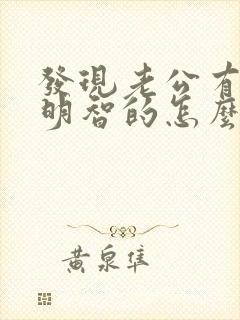 發現老公有
明智的怎麼
黃泉隼